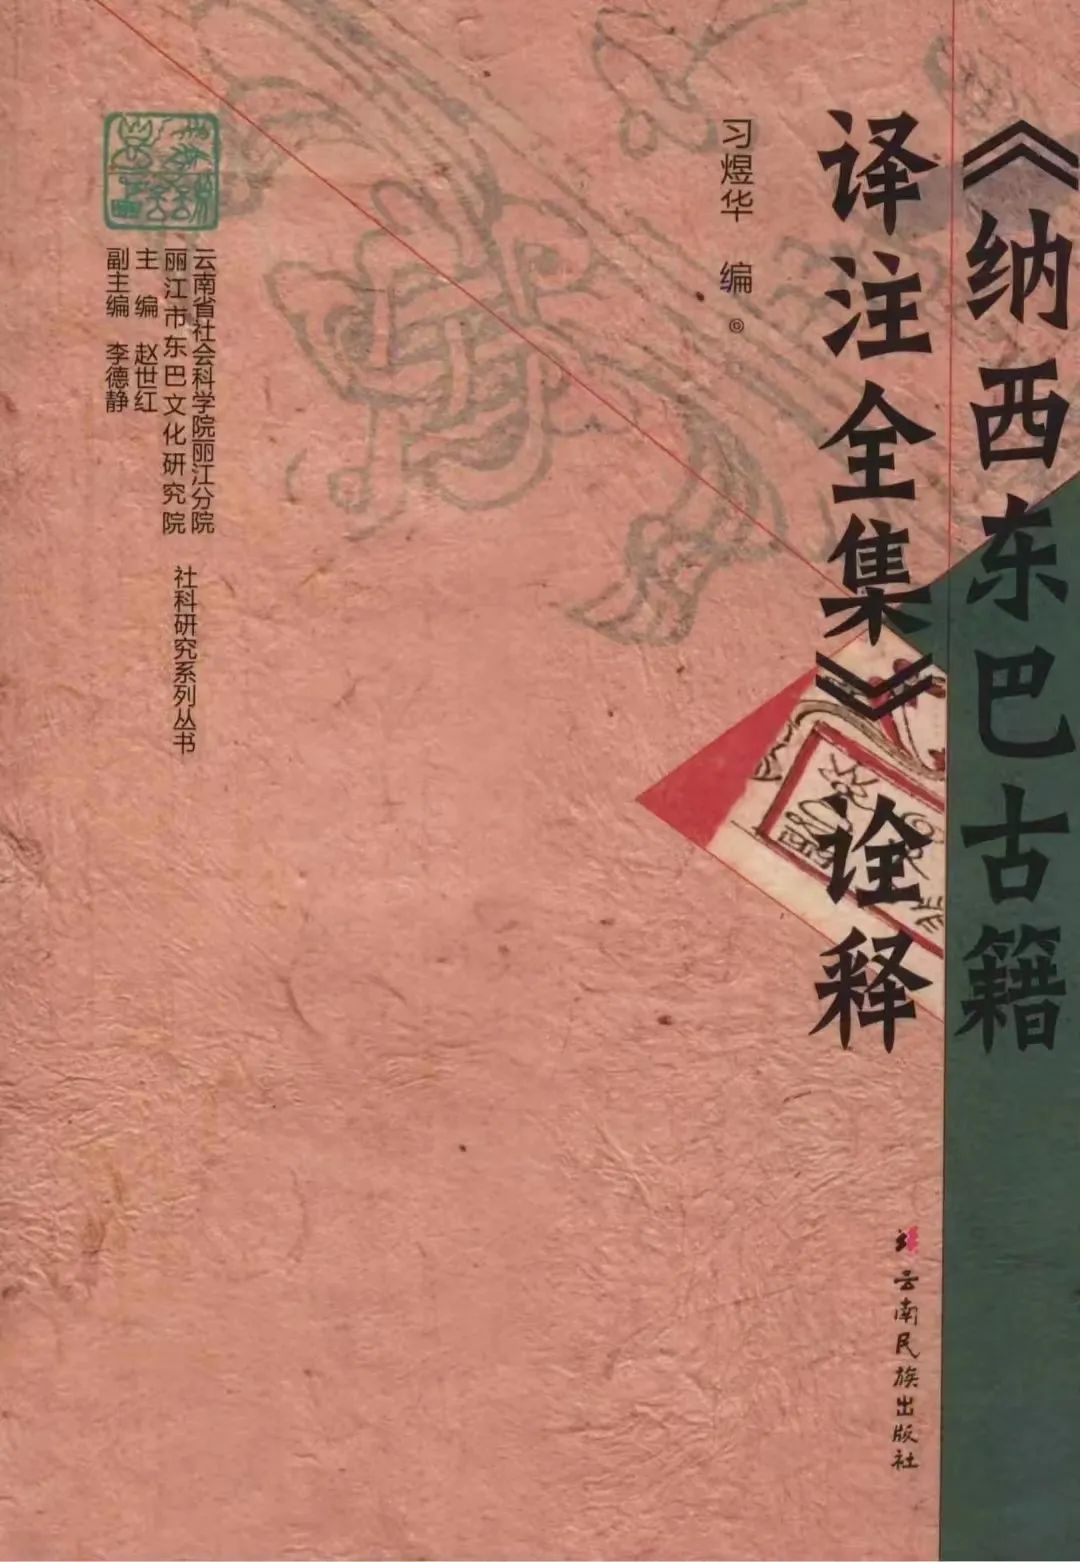 《纳西东巴古籍
译注全集》诠释
习煜华 编
云南省社会科学院丽江分院
丽江市东巴文化研究院
社科研究系列丛书
主 编 赵世红
副主编 李德静
云南民族出版社